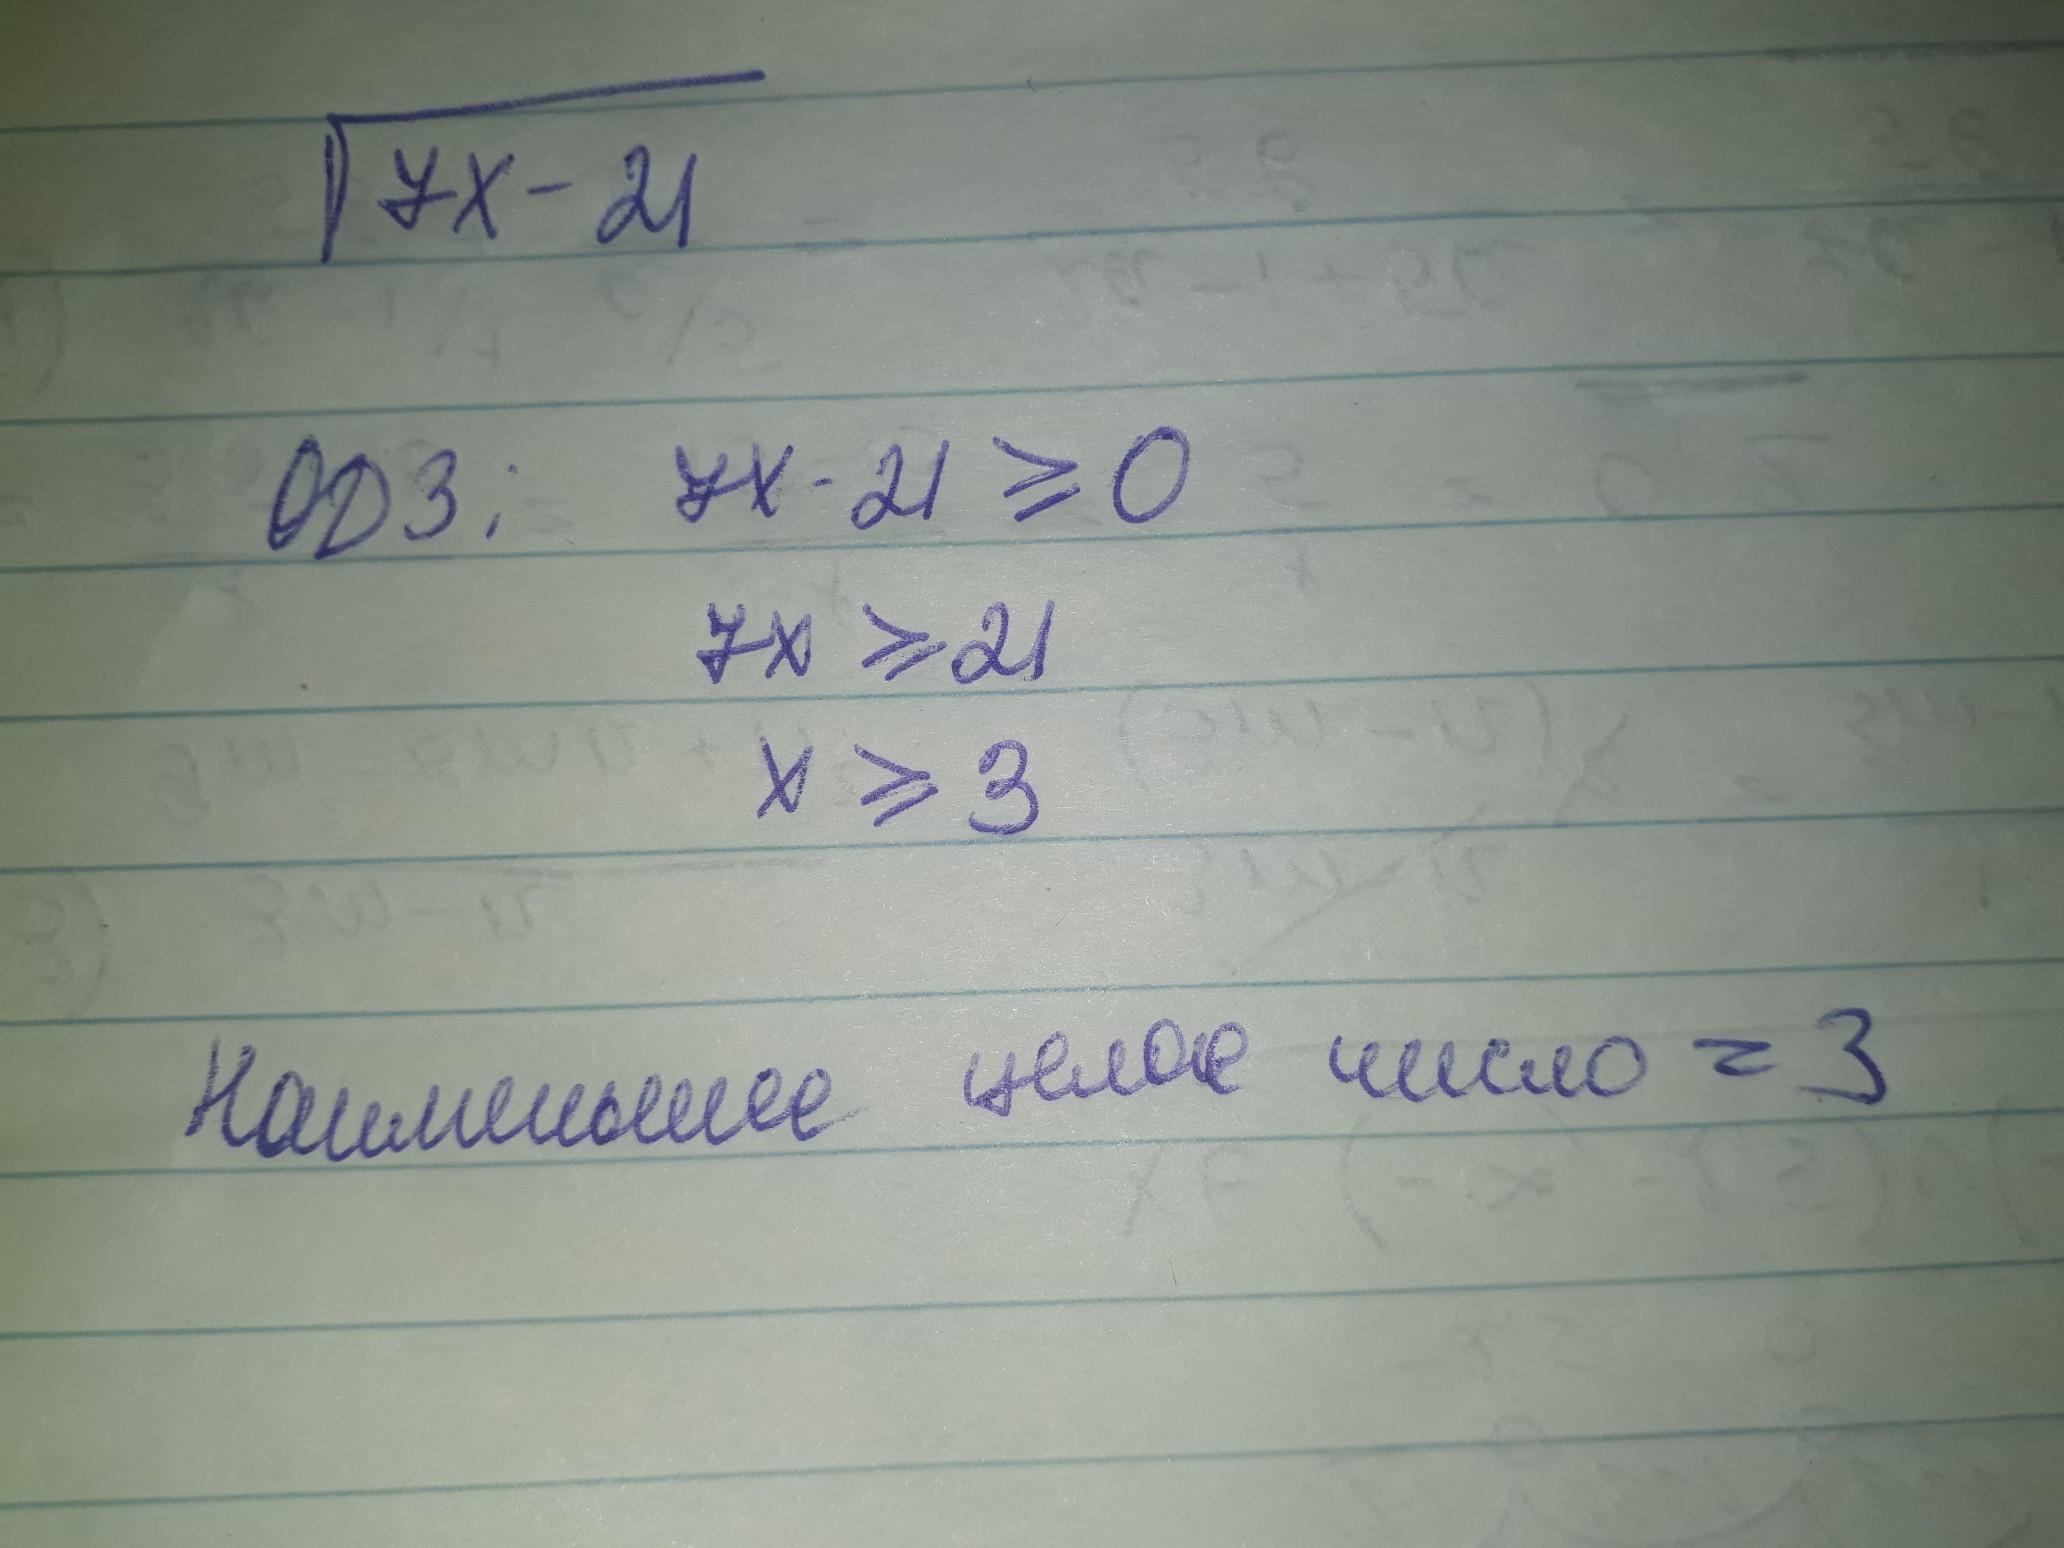 √7x - 21
ОДЗ: 7x - 21 ⩾ 0
7x ⩾ 21
x ⩾ 3
Наименьшее целое число = 3